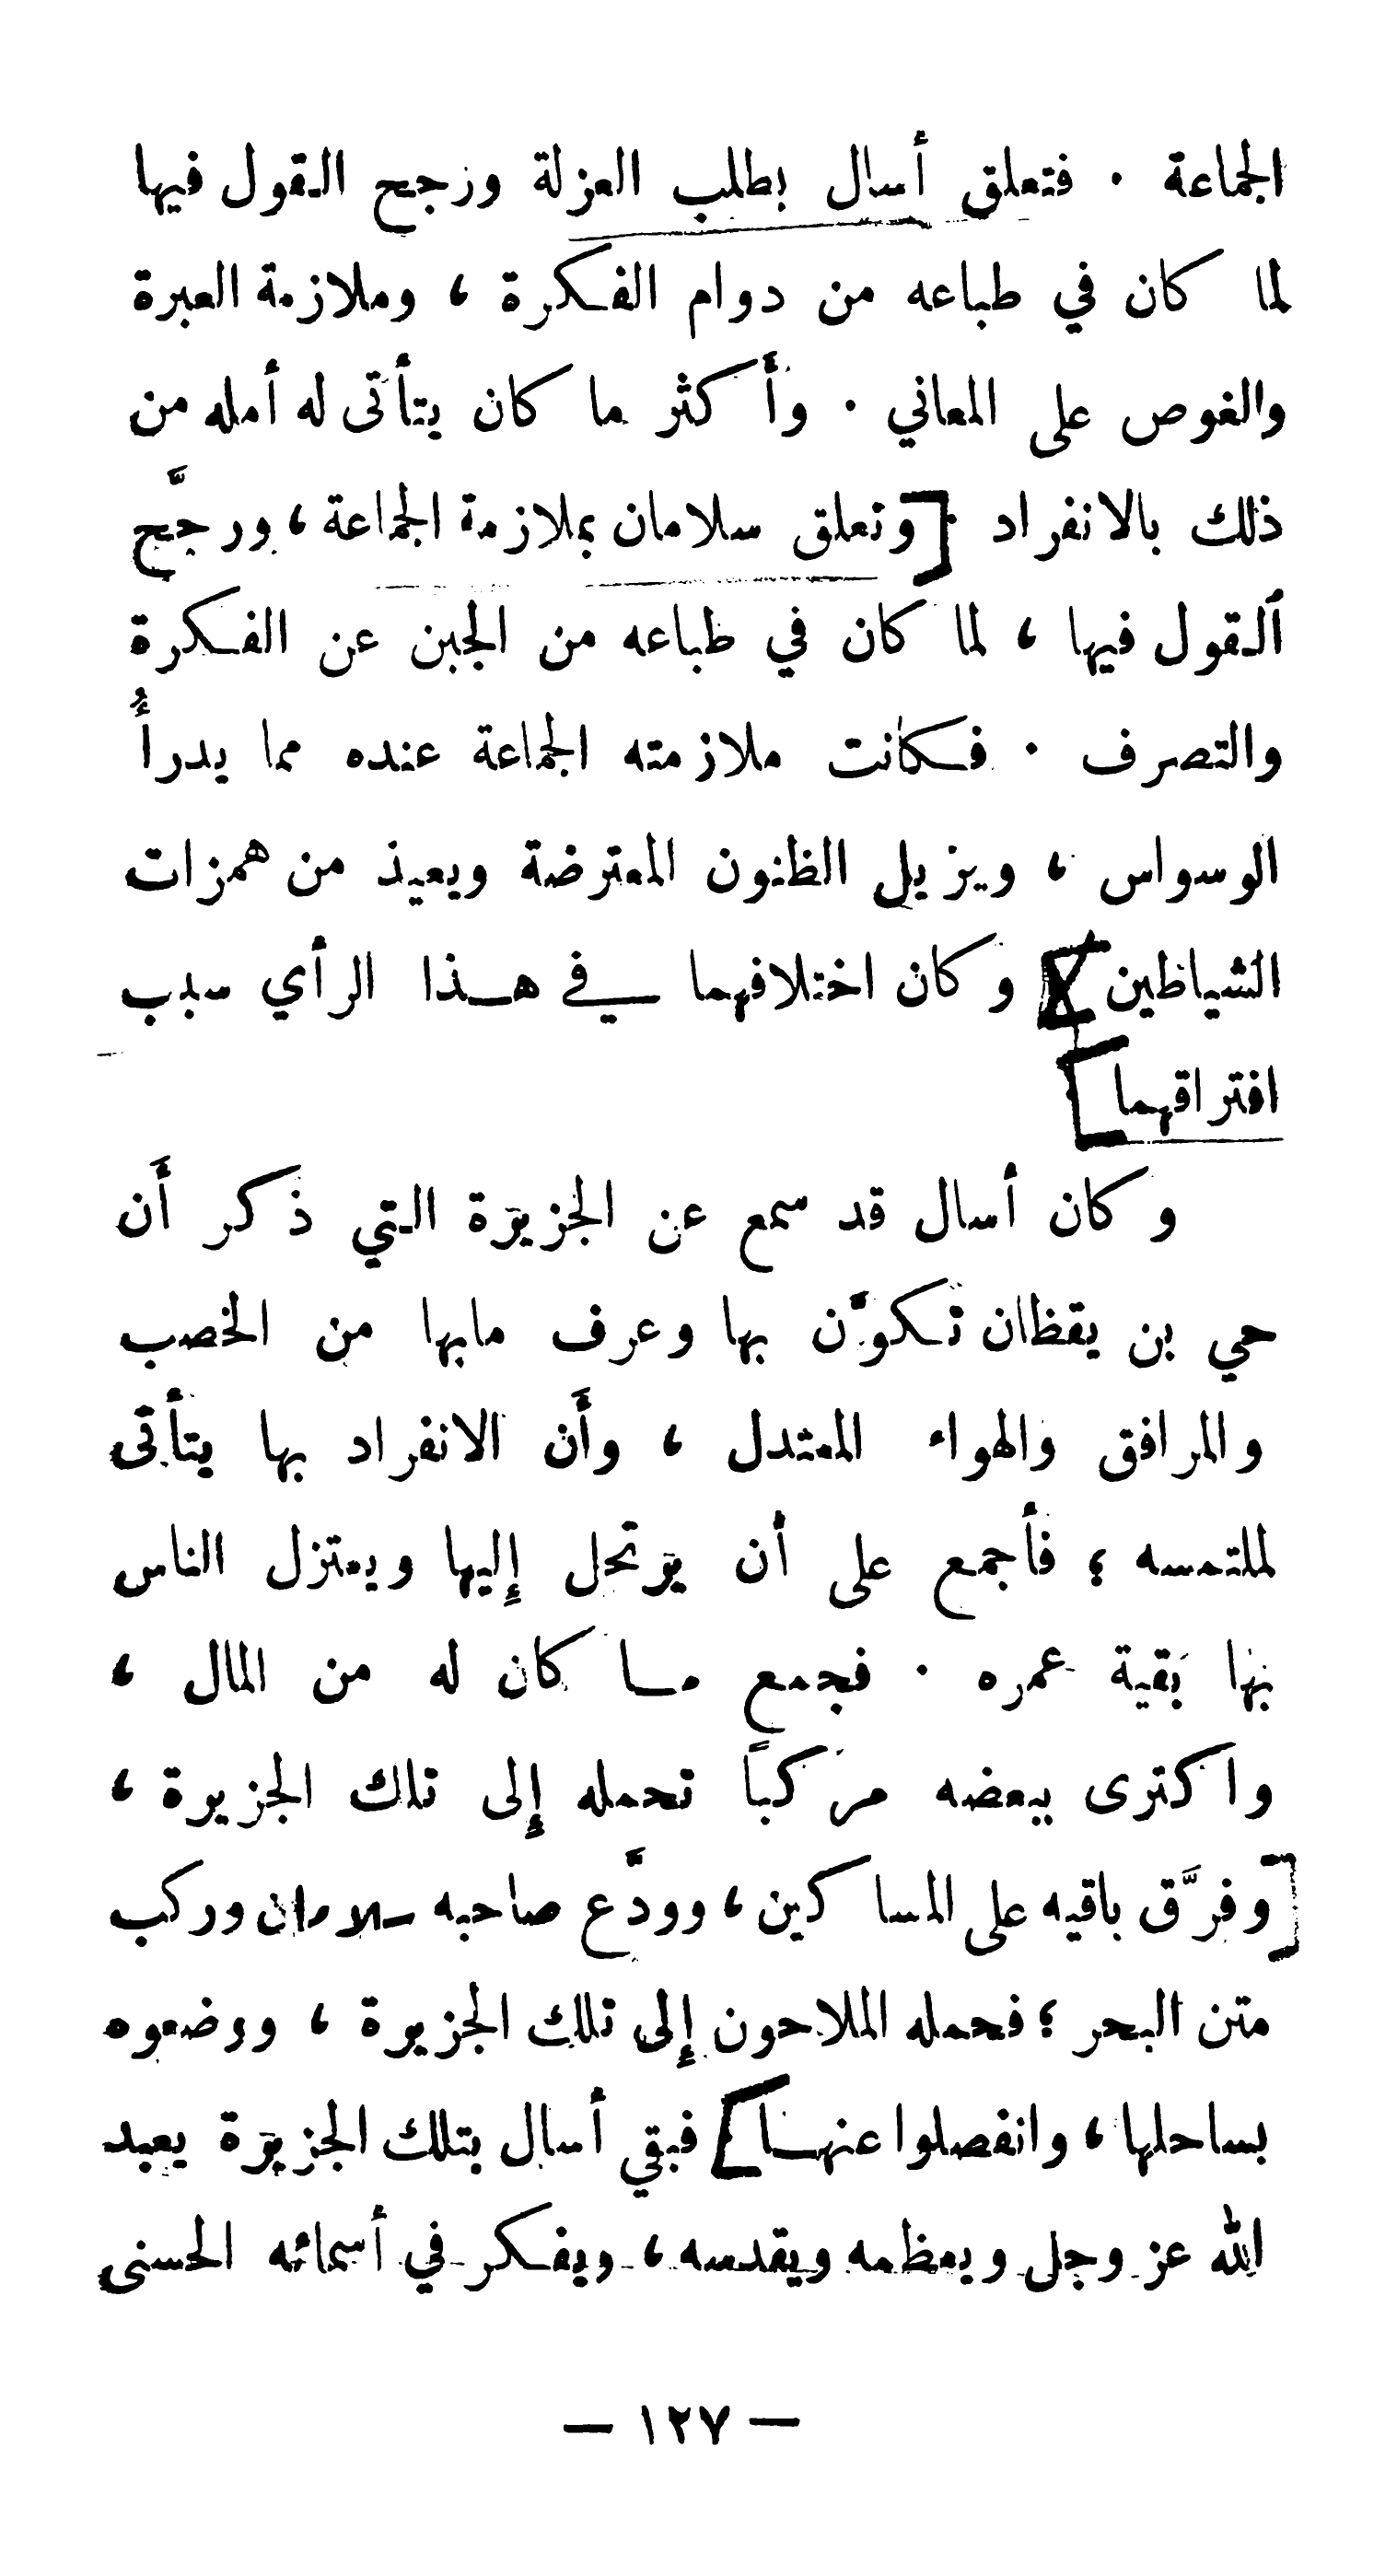 الجماعة . فتعلق أسال بطلب العزلة ورجح القول فيها
لما كان في طباعه من دوام الفكرة ، وملازمة العبرة
والغوص على المعاني . وأكثر ما كان يتأتى له أمله من
ذلك بالانفراد . وتعلق سلامان بملازمة الجماعة ، ورجَّح
القول فيها ، لما كان في طباعه من الجبن عن الفكرة
والتصرف . فكانت ملازمته الجماعة عنده مما يدرأُ
الوسواس ، ويزيل الظنون المعترضة ويعيذ من همزات
الشياطين . وكان اختلافهما في هذا الرأي سبب
افتراقهما
وكان أسال قد سمع عن الجزيرة التي ذكر أَن
حي بن يقظان تكوَّن بها وعرف مابها من الخصب
والمرافق والهواء المعتدل ، وأَن الانفراد بها يتأتى
لملتمسه ؛ فأجمع على أن يرتحل إليها ويعتزل الناس
بها بقية عمره . فجمع ما كان له من المال ،
واكترى ببعضه مركباً تحمله إلى تلك الجزيرة ،
وفرَّق باقيه على المساكين ، وودَّع صاحبه سلامان وركب
متن البحر ؛ فحمله الملاحون إلى تلك الجزيرة ، ووضعوه
بساحلها ، وانفصلوا عنها فبقي أسال بتلك الجزيرة يعبد
الله عز وجل ويعظمه ويقدسه ، ويفكر في أسمائه الحسنى
— ١٢٧ —